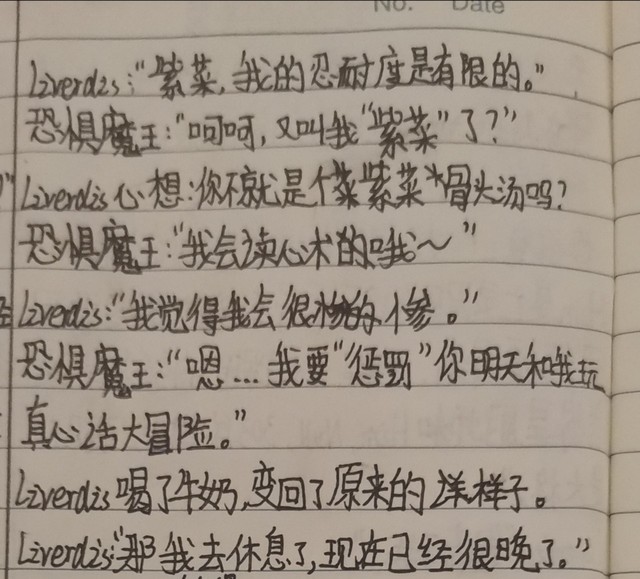 No. Date
Liverdis:“紫菜,我的忍耐度是有限的。”
恐惧魔王:“呵呵,又叫我“紫菜”了?”
Liverdis心想:你不就是个紫菜骨头汤吗?
恐惧魔王:“我会读心术的哦~”
Liverdis:“我觉得我会很惨。”
恐惧魔王:“嗯...我要“惩罚”你明天和我玩
真心话大冒险。”
Liverdis喝了牛奶,变回了原来的样子。
Liverdis:“那我去休息了,现在已经很晚了。”